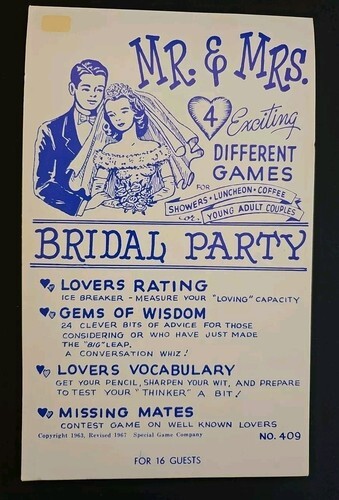 MR. & MRS.
4 Exciting
DIFFERENT
GAMES
FOR
SHOWERS • LUNCHEON • COFFEE
or
YOUNG ADULT COUPLES
BRIDAL PARTY
LOVERS RATING
ICE BREAKER - MEASURE YOUR "LOVING" CAPACITY
GEMS OF WISDOM
24 CLEVER BITS OF ADVICE FOR THOSE
CONSIDERING OR WHO HAVE JUST MADE
THE "BIG" LEAP.
A CONVERSATION WHIZ!
LOVERS VOCABULARY
GET YOUR PENCIL, SHARPEN YOUR WIT, AND PREPARE
TO TEST YOUR "THINKER" A BIT!
MISSING MATES
CONTEST GAME ON WELL KNOWN LOVERS
Copyright 1963, Revised 1967 Special Game Company NO. 409
FOR 16 GUESTS